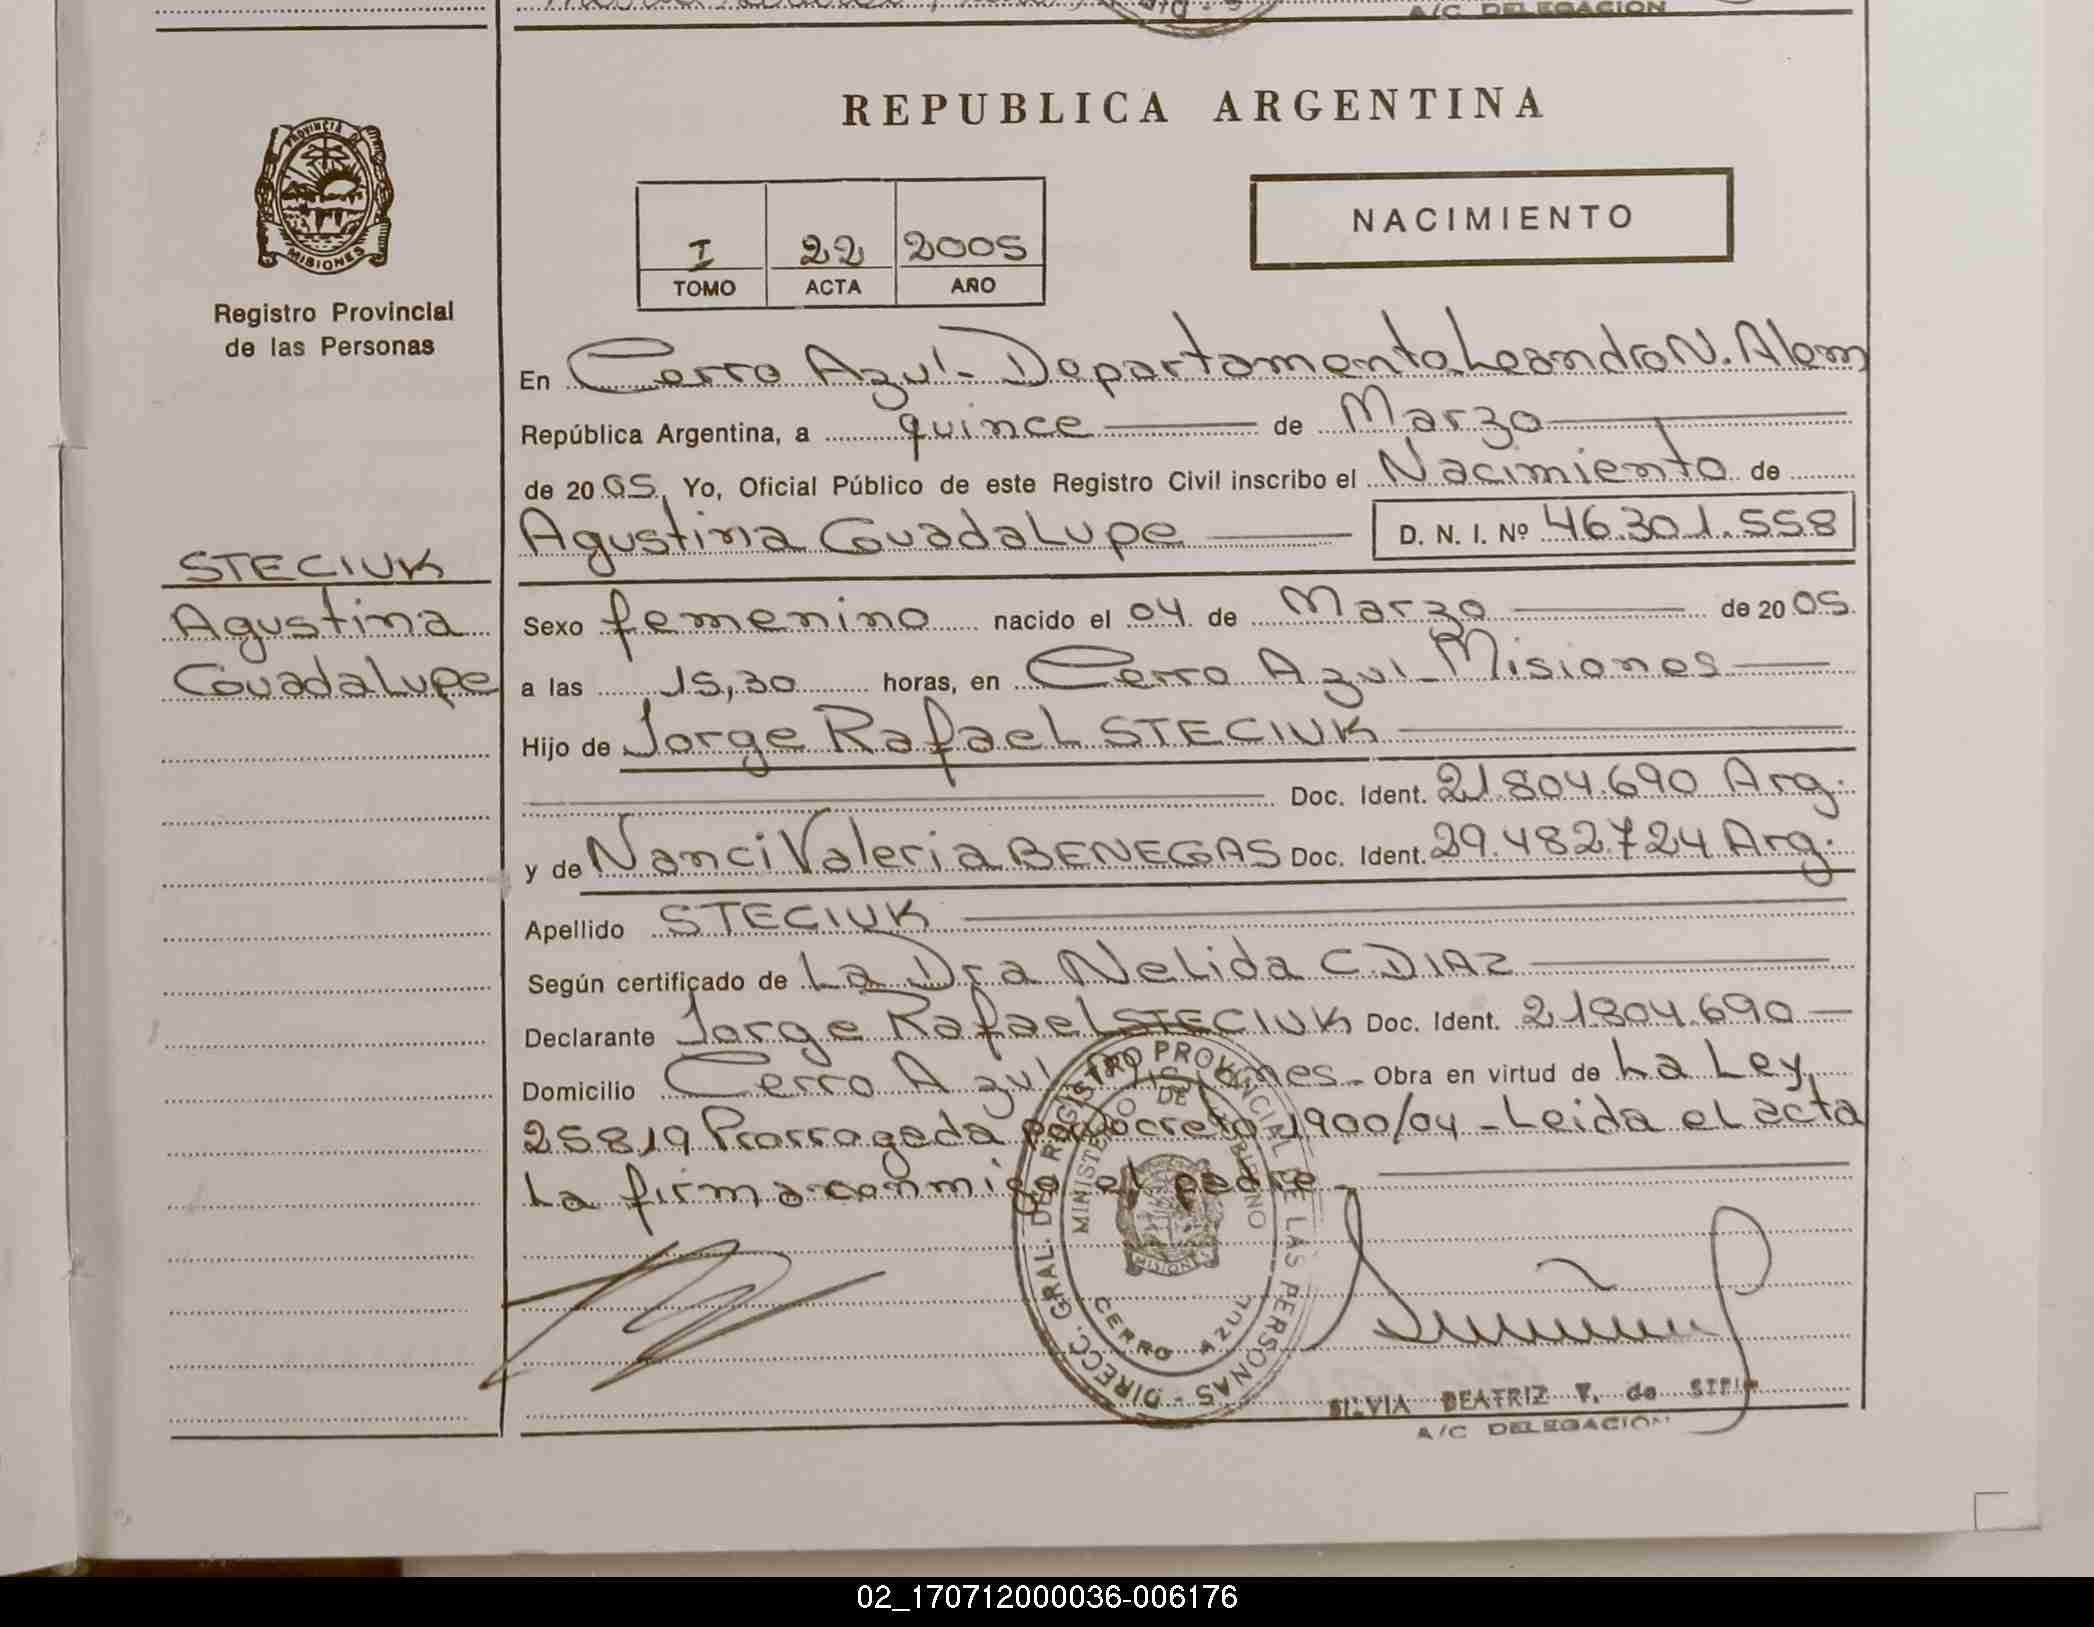 A/C DELEGACION
PROVINCIA DE
MISIONES
Registro Provincial
de las Personas
REPUBLICA ARGENTINA
I 22 2005
TOMO ACTA AÑO
NACIMIENTO
En Cerro Azul - Departamento Leandro N. Alem
República Argentina, a quince de Marzo
de 2005, Yo, Oficial Público de este Registro Civil inscribo el Nacimiento de
Agustina Guadalupe D. N. I. Nº 46.301.558
STECIUK
Agustina
Guadalupe
Sexo femenino nacido el 04 de Marzo de 2005
a las 15,30 horas, en Cerro Azul - Misiones
Hijo de Jorge Rafael STECIUK
Doc. Ident. 21.804.690 Arg.
y de Nanci Valeria BENEGAS Doc. Ident. 29.482.724 Arg.
Apellido STECIUK
Según certificado de La Dra Nelida C. DIAZ
Declarante Jorge Rafael STECIUK Doc. Ident. 21.804.690 -
Domicilio Cerro Azul Misiones - Obra en virtud de La Ley
25819 Prorrogada por Decreto 1900/04 - Leida el acta
La firma conmigo el padre -
DIRECC. GRAL. DEL REGISTRO PROVINCIAL DE LAS PERSONAS -
MINISTERIO DE GOBIERNO
MISIONES
CERRO AZUL
SILVIA BEATRIZ V. de
A/C DELEGACION
02_170712000036-006176